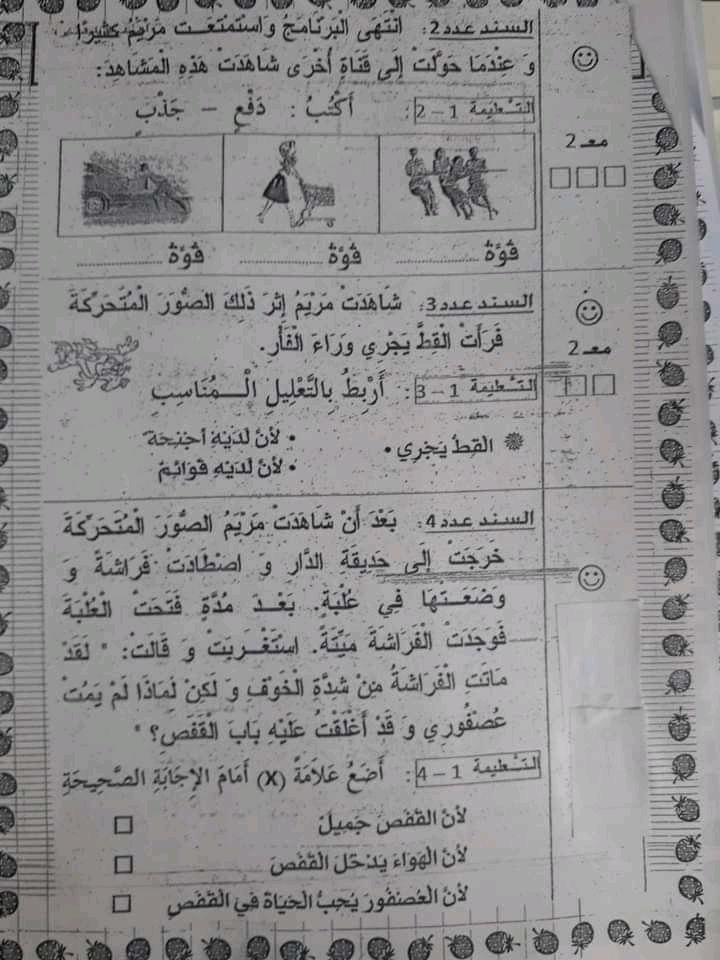 السند عدد2: انتَهَى البَرْنَامَجُ وَاسْتَمْتَعَت مَرْيَمُ كَثِيرًا
وَ عِنْدَمَا حَوَّلَتْ إِلَى قَنَاةٍ أُخْرَى شَاهَدَتْ هَذِهِ الْمَشَاهِدَ:
التعليمة 1 – 2: أَكْتُبُ: دَفْعٍ – جَذْبٍ
معـ 2
قُوَّةُ .............. قُوَّةُ .............. قُوَّةُ ..............
السند عدد3: شَاهَدَتْ مَرْيَمُ إِثْرَ ذَلِكَ الصُّوَرَ الْمُتَحَرِّكَةَ
فَرَأَتْ الْقِطَّ يَجْرِي وَرَاءَ الْفَأْرِ.
معـ 2
التعليمة 1 – 3: أَرْبِطُ بِالتَّعْلِيلِ الْـــمُنَاسِبِ
القِطُ يَجْرِي •
• لأنَّ لَدَيْهِ أجْنِحَة
• لأنَّ لَدَيْهِ قَوَائِمُ
السند عدد4: بَعْدَ أَنْ شَاهَدَتْ مَرْيَمُ الصُّوَرَ الْمُتَحَرِّكَةَ
خَرَجَتْ إلى حَدِيقَةِ الدَّارِ وَ اصْطَادَتْ فَرَاشَةً وَ
وَضَعَـتْهَا فِي عُلْبَةٍ. بَعْـدَ مُدَّةٍ فَتَحَتْ الْعُلْبَةَ
فَوَجَدَتْ الْفَرَاشَةَ مَيِّتَةً. اسْتَغْـرَبَتْ وَ قَالَتْ: " لَقَدْ
مَاتَتِ الْفَرَاشَةُ مِنْ شِدَّةِ الْخَوْفِ وَ لَكِنْ لِمَاذَا لَمْ يَمُتْ
عُصْفُورِي وَ قَدْ أَغْلَقْتُ عَلَيْهِ بَابَ الْقَفَصِ؟ "
التعليمة 1 – 4: أَضَعُ عَلاَمَةً (X) أَمَامَ الإِجَابَةِ الصَّحِيحَةِ
لأنَّ القَفَصَ جَمِيلٌ
لأنَّ الهَوَاءَ يَدْخُلُ القَفَصَ
لأنَّ العُصْفُورَ يُحِبُّ الحَيَاةَ فِي القَفَصِ